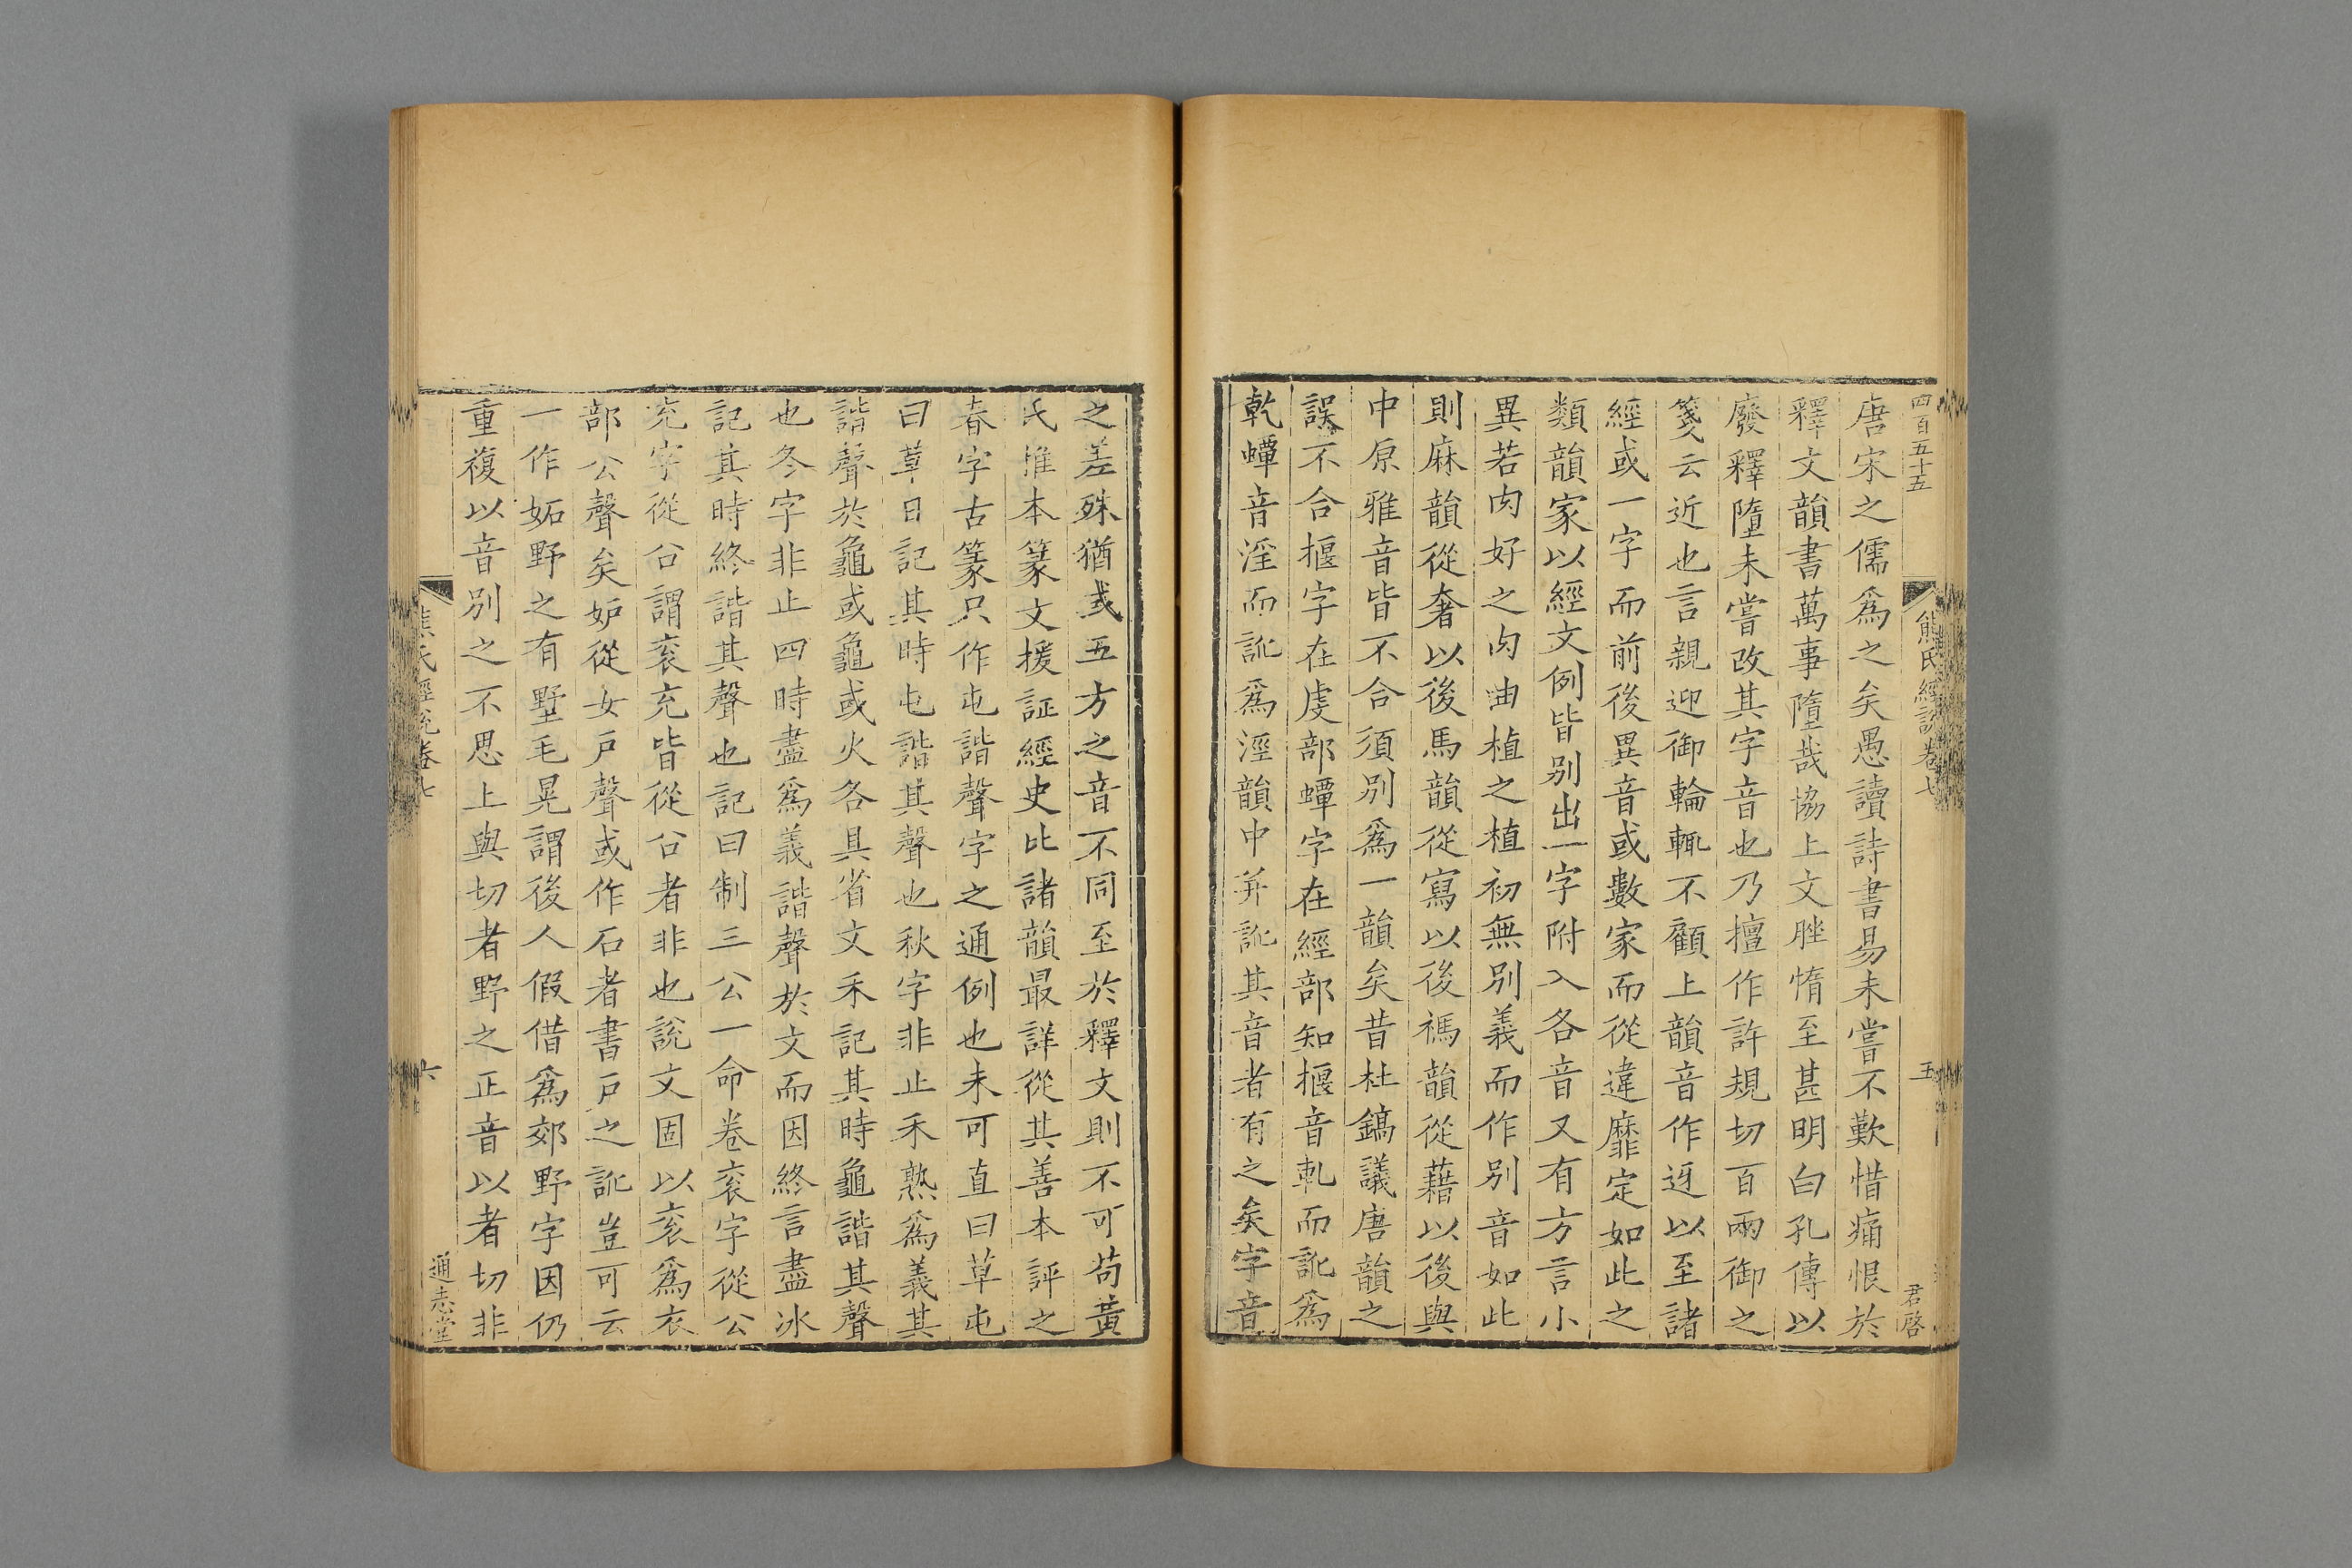 四百五十五
熊氏經說卷七
五
君啓
唐宋之儒爲之矣愚讀詩書易未嘗不歎惜痛恨於
釋文韻書萬事墮哉協上文脞惰至甚明白孔傳以
廢釋墮未嘗改其字音也乃擅作許規切百兩御之
箋云近也言親迎御輪輒不顧上韻音作迓以至諸
經或一字而前後異音或數家而從違靡定如此之
類韻家以經文例皆別出一字附入各音又有方言小
異若肉好之肉由植之植初無別義而作別音如此
則麻韻從奢以後馬韻從寫以後禡韻從藉以後與
中原雅音皆不合須別爲一韻矣昔杜鎬議唐韻之
誤不合揠字在虔部蟫字在經部知揠音軋而訛爲
乾蟫音淫而訛爲涇韻中并訛其音者有之矣字音
之差殊猶或五方之音不同至於釋文則不可苟黃
氏惟本篆文援証經史比諸韻最詳從其善本評之
春字古篆只作屯諧聲字之通例也未可直曰草屯
曰草日記其時屯諧其聲也秋字非止禾熟爲義其
諧聲於龜或龜或火各具省文禾記其時龜諧其聲
也冬字非止四時盡爲義諧聲於文而因終言盡冰
記其時終諧其聲也記曰制三公一命卷衮字從公
兖字從㕣謂衮兖皆從㕣者非也說文固以衮爲衣
部公聲矣妒從女戶聲或作石者書戶之訛豈可云
一作妬野之有墅毛晃謂後人假借爲郊野字因仍
重複以音別之不思上與切者野之正音以者切非
熊氏經說卷七
六
通志堂